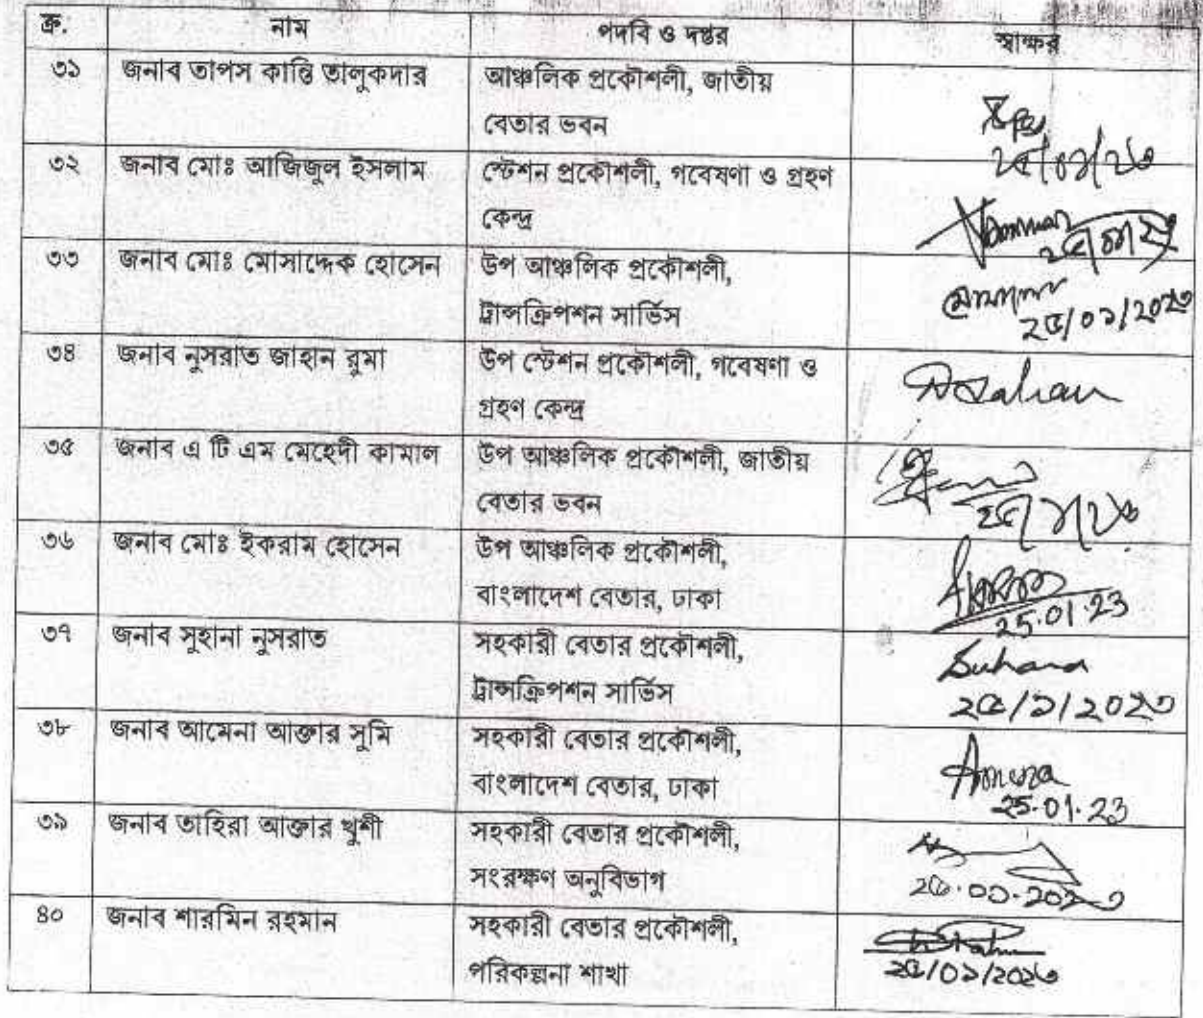 ক্র. নাম পদবি ও দপ্তর স্বাক্ষর
৩১ জনাব তাপস কান্তি তালুকদার আঞ্চলিক প্রকৌশলী, জাতীয়
বেতার ভবন
২৫/০১/২৩
৩২ জনাব মোঃ আজিজুল ইসলাম স্টেশন প্রকৌশলী, গবেষণা ও গ্রহণ
কেন্দ্র
৩৩ জনাব মোঃ মোসাদ্দেক হোসেন উপ আঞ্চলিক প্রকৌশলী,
ট্রান্সক্রিপশন সার্ভিস
২৫/০১/২০২৩
৩৪ জনাব নুসরাত জাহান রুমা উপ স্টেশন প্রকৌশলী, গবেষণা ও
গ্রহণ কেন্দ্র
৩৫ জনাব এ টি এম মেহেদী কামাল উপ আঞ্চলিক প্রকৌশলী, জাতীয়
বেতার ভবন
৩৬ জনাব মোঃ ইকরাম হোসেন উপ আঞ্চলিক প্রকৌশলী,
বাংলাদেশ বেতার, ঢাকা
25.01.23
৩৭ জনাব সুহানা নুসরাত সহকারী বেতার প্রকৌশলী,
Suhana
ট্রান্সক্রিপশন সার্ভিস
২৫/১/২০২৩
৩৮ জনাব আমেনা আক্তার সুমি সহকারী বেতার প্রকৌশলী,
বাংলাদেশ বেতার, ঢাকা
25.01.23
৩৯ জনাব তাহিরা আক্তার খুশী সহকারী বেতার প্রকৌশলী,
সংরক্ষণ অনুবিভাগ
২৫.০১.২০২৩
৪০ জনাব শারমিন রহমান সহকারী বেতার প্রকৌশলী,
পরিকল্পনা শাখা
২৫/০১/২০২৩